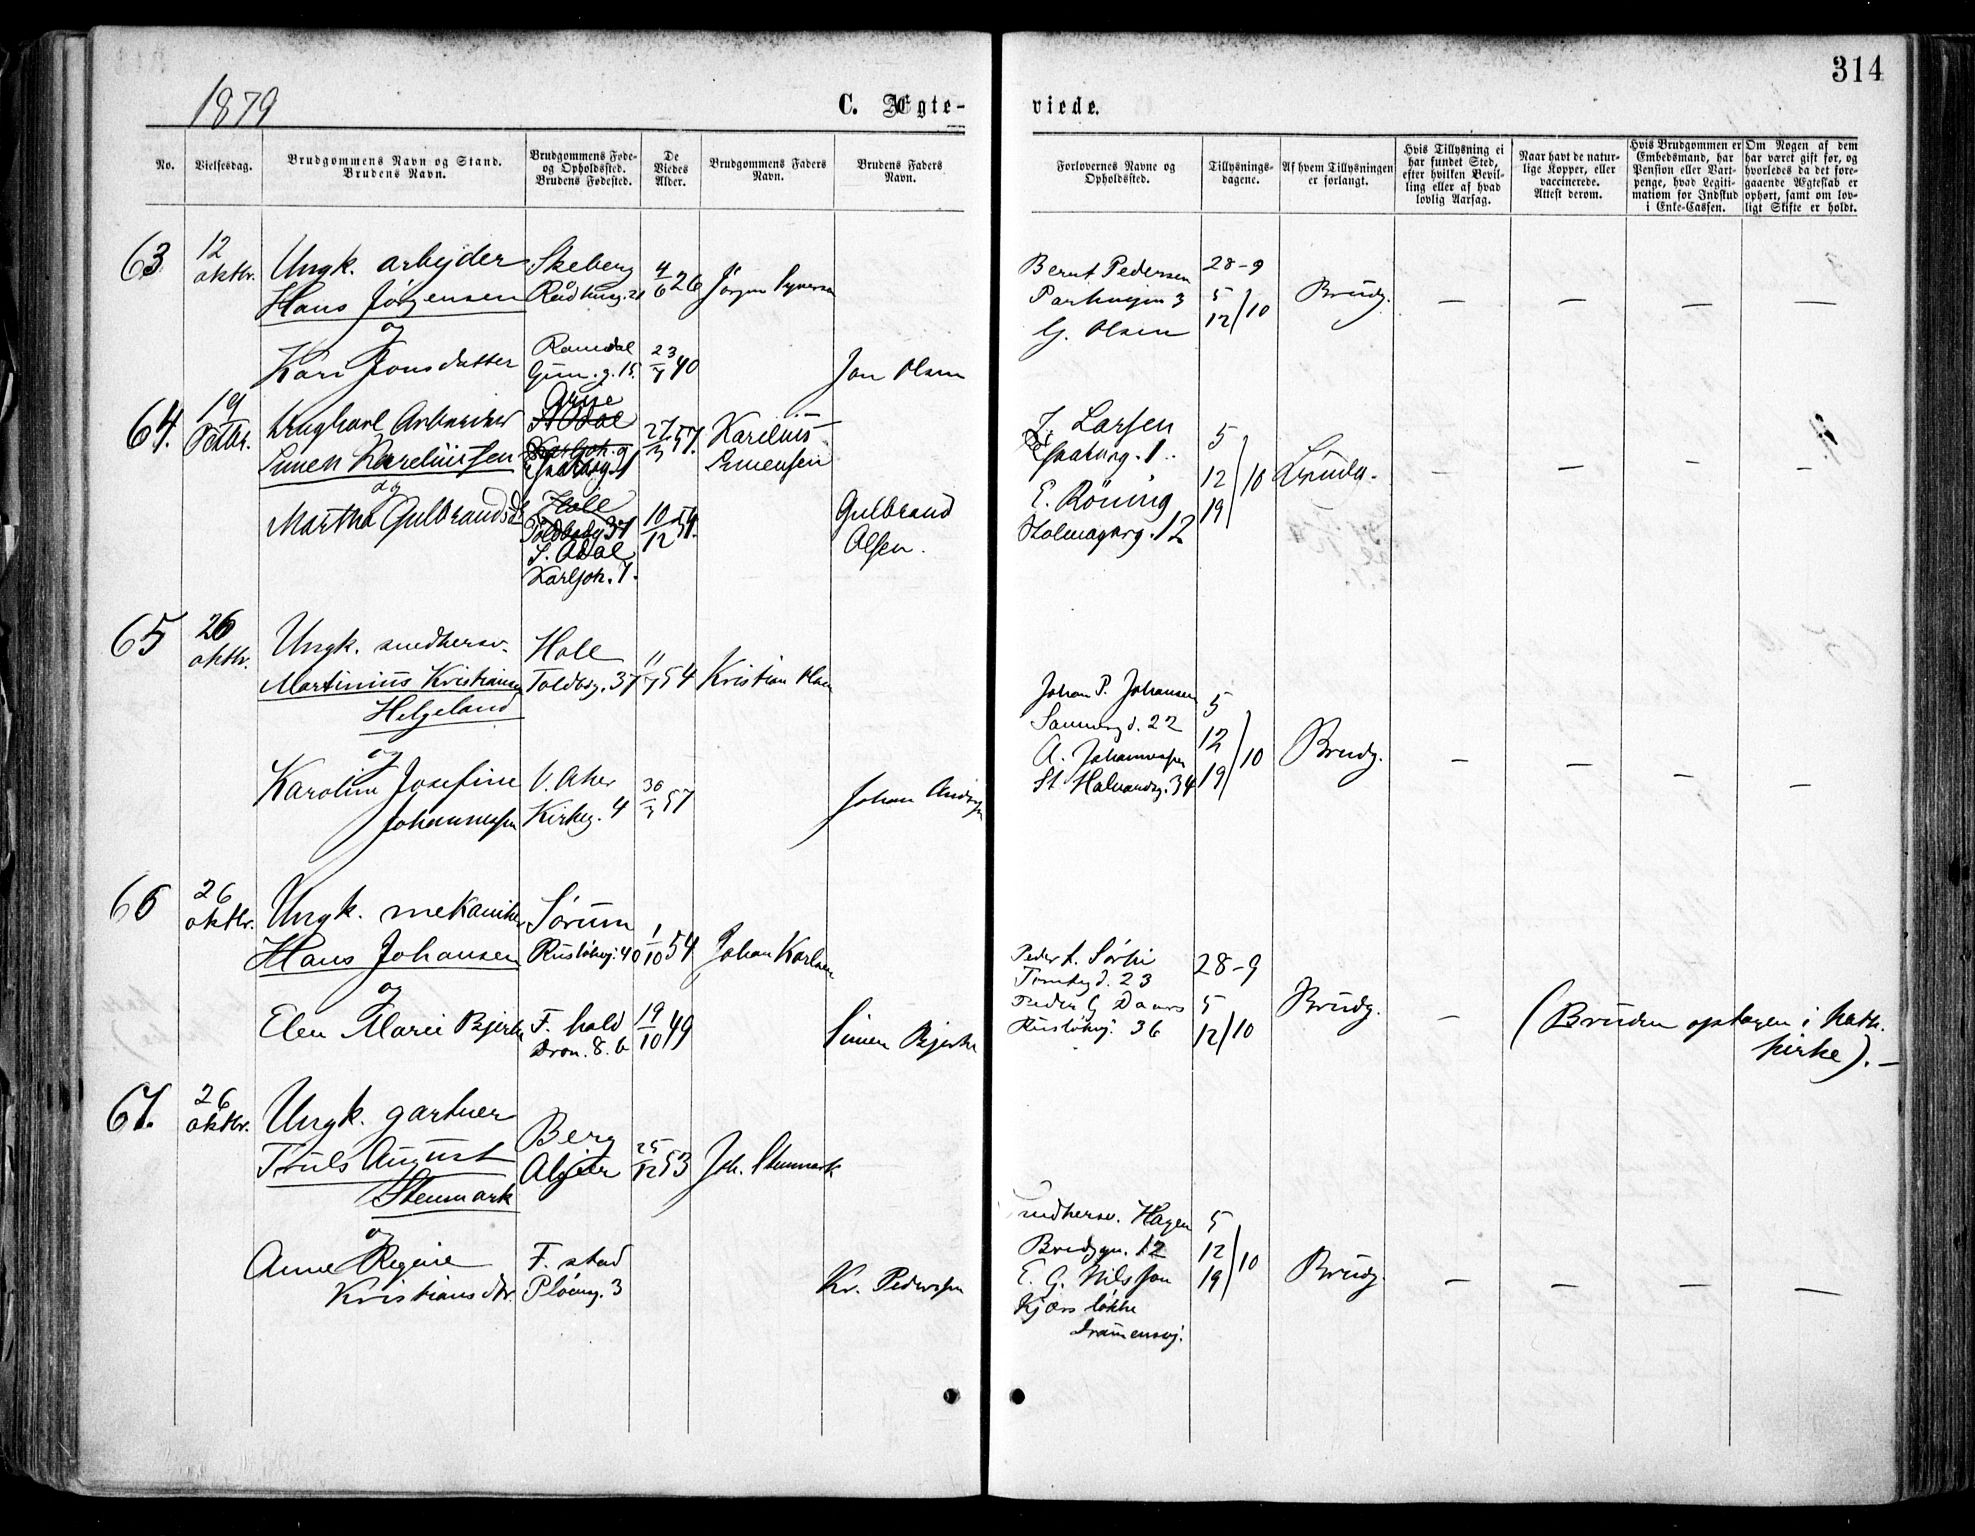 314
1879
C. Ægte-
viede.
No.
Vielsesdag.
Brudgommens Navn og Stand.
Brudens Navn.
Brudgommens Føde-
og Opholdssted.
Brudens Fødested.
De
Viedes
Alder.
Brudgommens Faders
Navn.
Brudens Faders
Navn.
Forlovernes Navne og
Opholdssted.
Tillysnings-
dagene.
Af hvem Tillysningen
er forlangt.
Hvis Tillysning ei
har fundet Sted,
efter hvilken Bevil-
ling eller af hvad
lovlig Aarsag.
Naar havt de natur-
lige Kopper, eller
vaccinerede.
Attest derom.
Hvis Brudgommen er
Embedsmand, har
Pension eller Vart-
penge, hvad Legiti-
mation for Indskud
i Enke-Cassen.
Om Nogen af dem
har været gift før, og
hvorledes da det fore-
gaaende Ægteskab er
ophørt, samt om lov-
ligt Skifte er holdt.
63
12
oktbr.
Ungk. arbejder
Hans Jörgensen
og
Kari Jonsdatter
Skeberg
4
6 26
Romsdal
Grün. g. 15.
23
7 40
Jon Olsen
Bernt Pedersen
Parkvejen 3
G. Olsen
28-9
5
12/10
Brudg.
— — — —
64.
19
Octbr.
Ungkarl Arbeider
Simen Karelius sen
og
Martha Gulbrandsd.
N Odal
27
3 57.
Karelius
Simensen
Hole
Toldbodg 37
S. Odal
Karljoh. 7.
10
12 54.
Gulbrand
Olsen.
Larsen
1.
E. Röning
Holmagarg. 12
5
12
19 /10
— — — —
65
26
oktbr.
Ungk. smedhersv.
Martinius Kristiansen
Helgeland
og
Karoline Josefine
Johannessen
Hole
Toldbg. 37
11
7 54
Kristian Olsen
V. Aker
Kirkeg. 4
30
3 57
Johan Anders
Johan P. Johansen
22
A. Johannessen
St. Halvardsg. 34
5
12
19 /10
Brudg.
— — — —
66
26
oktbr.
Ungk. mekaniker
Hans Johansen
og
Elen Marie Bjerke
Sörum
Rusløkvj. 40
1
10 54
Johan Karlsen
F. hald
Dron. 8. b
19
10 49
Simen Bjerke
Peder L. Sørli
Tomtegd. 23
Peder G Daars
Rusløkvj. 36
28-9
5
12/10
Brudg.
—
(Bruden optagen i kath.
kirke). —
67.
26
oktbr.
Ungk. gartner
Truls August
Stenmark
og
Anne Regine
Kristiansdtr.
Berg
Algier
25
12 53
Joh. Stenmark
F. stad
Plöieng. 3
Kr. Pedersen
Smedhersv. Hagen
Bredgn. 12
E. G. Nilsson
Kjærs løkke
Dramensvj.
5
12
19 /10
Brudg.
— — — —